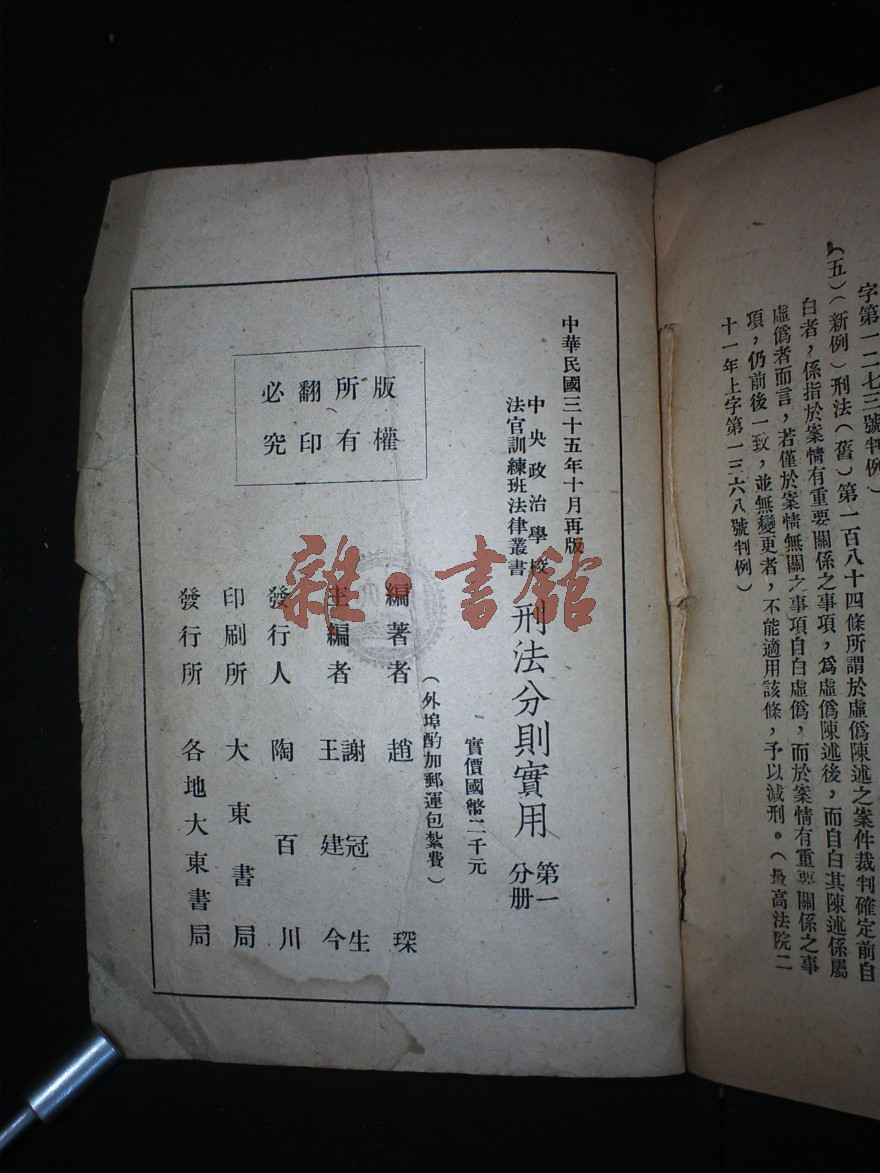 字第一二七三號判例）
（五）（新例）刑法（舊）第一百八十四條所謂於虛偽陳述之案件裁判確定前自
白者，係指於案情有重要關係之事項，為虛偽陳述後，而自白其陳述係屬
虛偽者而言，若僅於案情無關之事項自白虛偽，而於案情有重要關係之事
項，仍前後一致，並無變更者，不能適用該條，予以減刑。（最高法院二
十一年上字第一三六八號判例）
中華民國三十五年十月再版
中央政治學校
法官訓練班法律叢書
刑法分則實用
第一
分册
實價國幣二千元
（外埠酌加郵運包紮費）
編著者 趙琛
主編者 謝冠生
王建今
發行人 陶百川
印刷所 大東書局
發行所 各地大東書局
版權
所有
翻印
必究
雜·書館